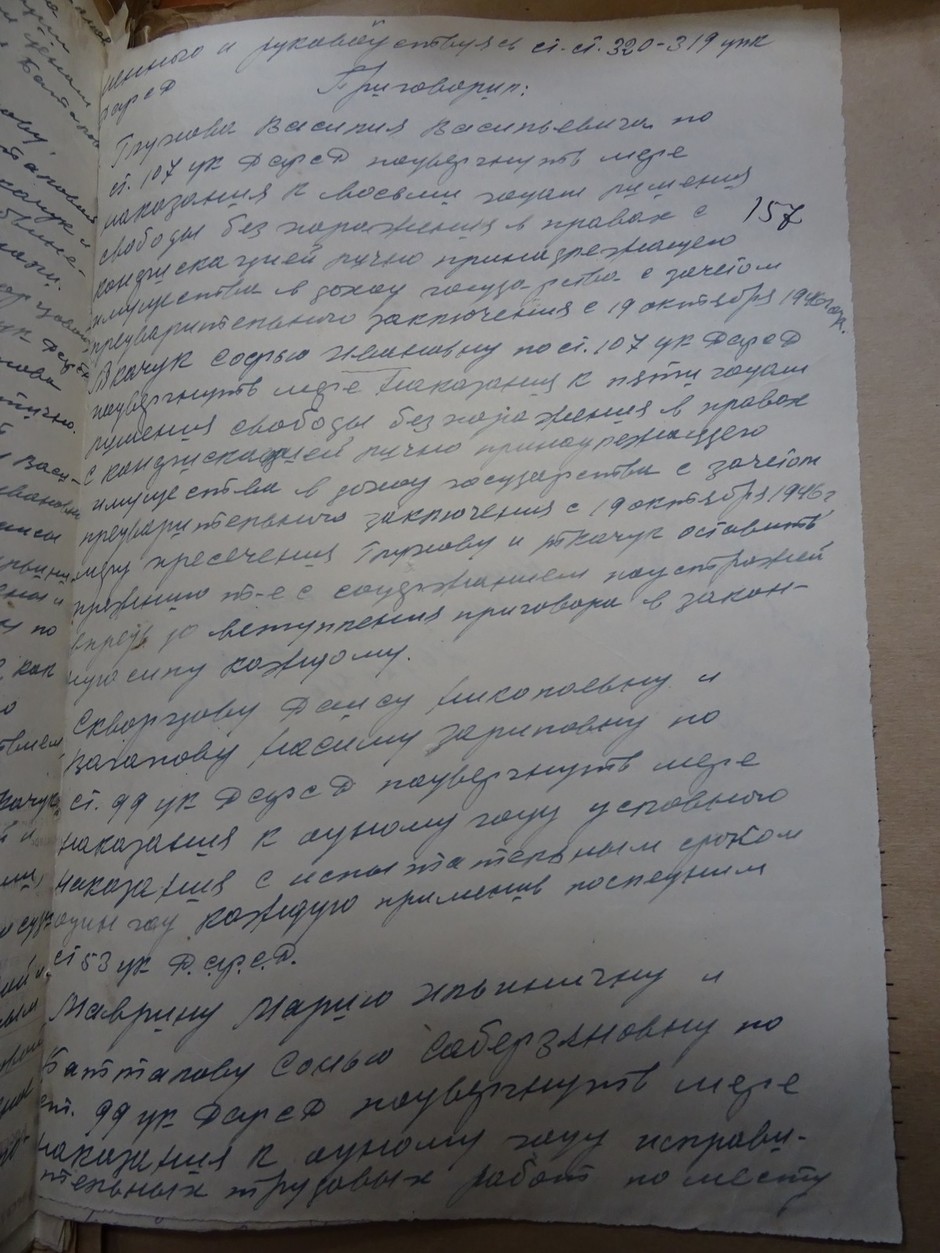 ченного и руководствуясь ст.ст. 320-319 упк
РСФСР
Приговорил:
Глухова Василия Васильевича по
ст. 107 ук РСФСР подвергнуть мере
наказания к восьми годам лишения
свободы без поражения в правах с
157
конфискацией лично принадлежащего
имущества в доход государства с зачетом
предварительного заключения с 19 октября 1946 года.
Ткачук Софью Ивановну по ст. 107 ук РСФСР
подвергнуть мере наказания к пяти годам
лишения свободы без поражения в правах
с конфискацией лично принадлежащего
имущества в доход государства с зачетом
предварительного заключения с 19 октября 1946 г
меру пресечения Глухову и Ткачук оставить
прежнюю т-е с содержанием под стражей
впредь до вступления приговора в закон-
ную силу каждому.
Скворцову Раису Николаевну и
Вагапову Насиму Зариповну по
ст. 99 ук РСФСР подвергнуть мере
наказания к одному году условного
наказания с испытательным сроком
один год каждую применив последним
ст 53 ук Р.С.Ф.С.Р.
Маврину Марию Ильиничну и
Батталову Сонью Саберзяновну по
ст. 99 ук РСФСР подвергнуть мере
наказания к одному году исправи-
тельных трудовых работ по месту